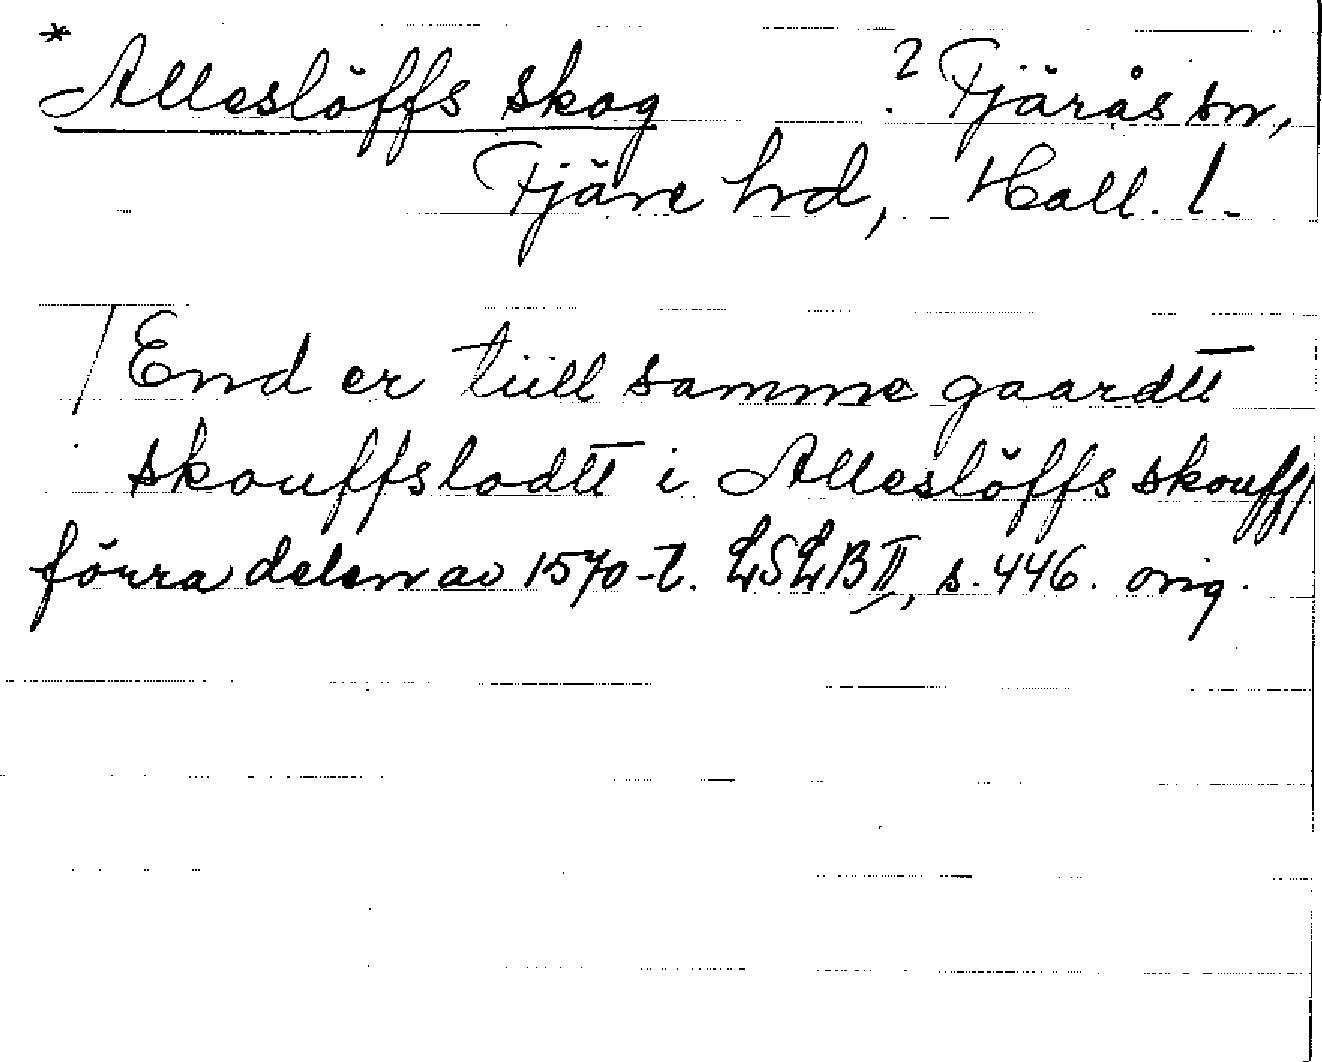 * Alleslöffs skog ? Fjärås sn,
Fjäre hd, Hall. l.
/ End er tüll samme gaardtt
skouffslodtt i Alleslöffs skouff/
förra delen av 1570-t. LSLB II, s. 446. orig.